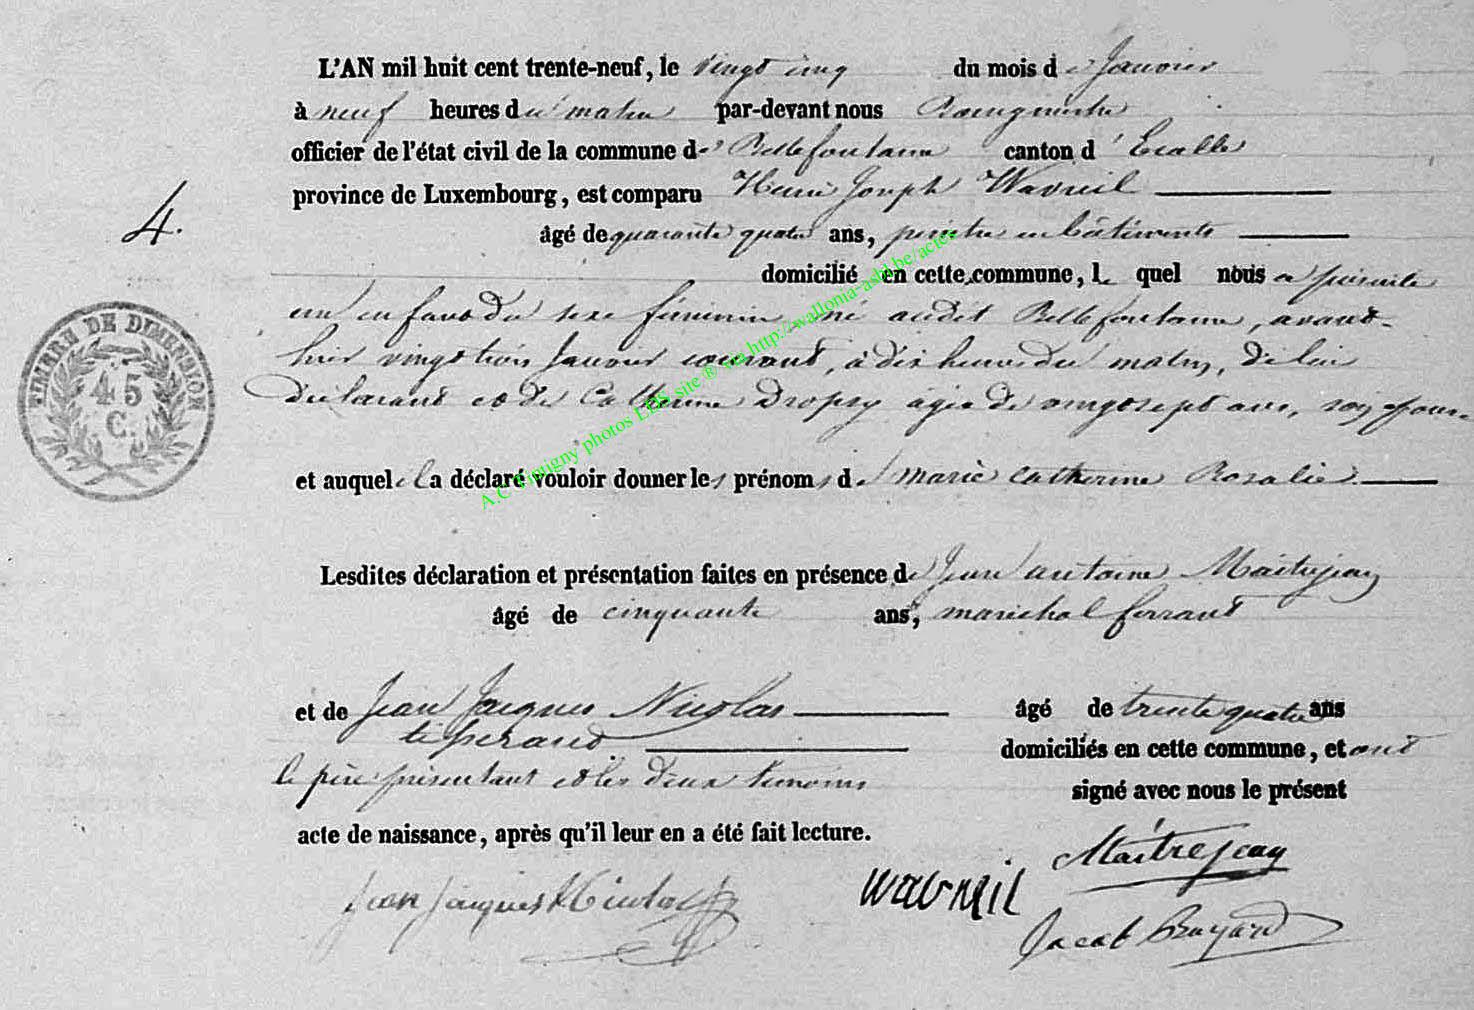 L'AN mil huit cent trente-neuf, le vingt cinq du mois de Janvier
à neuf heures du matin par-devant nous Bourgmestre
officier de l'état civil de la commune de Bellefontaine canton d'Etalle
province de Luxembourg, est comparu Henri Joseph Wavreil
4.
âgé de quarante quatre ans, peintre en bâtiments
domicilié en cette commune, le quel nous a présenté
un enfant du sexe féminin, né audit Bellefontaine, avant-
hier vingt trois Janvier courant, à dix heures du matin, de lui
déclarant et de Catherine Dropsy âgée de vingt sept ans, son épouse
TIMBRE DE DIMENSION
45
C.
et auquel il a déclaré vouloir donner les prénoms de Marie Catherine Rosalie
Lesdites déclaration et présentation faites en présence de Jean Antoine Maitrejean
âgé de cinquante ans, maréchal ferrant
et de Jean Jacques Nicolas âgé de trente quatre ans
tisserand domiciliés en cette commune, et ont
le père présentant et les deux témoins
signé avec nous le présent
acte de naissance, après qu'il leur en a été fait lecture.
Maitrejean
Jean Jacques Nicolas Wavreil
Jacob Buyard
A.C Tintigny photos LDS site ® via http://wallonia-asbl.be/actes